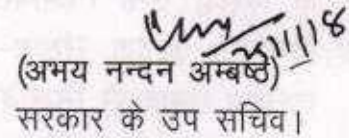 (अभय नन्दन अम्बष्ठ)
सरकार के उप सचिव।